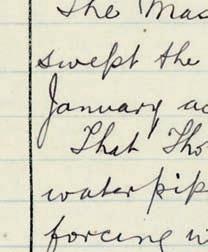 The Mas
swept the
January ac
That Tho
water pip
forcing w